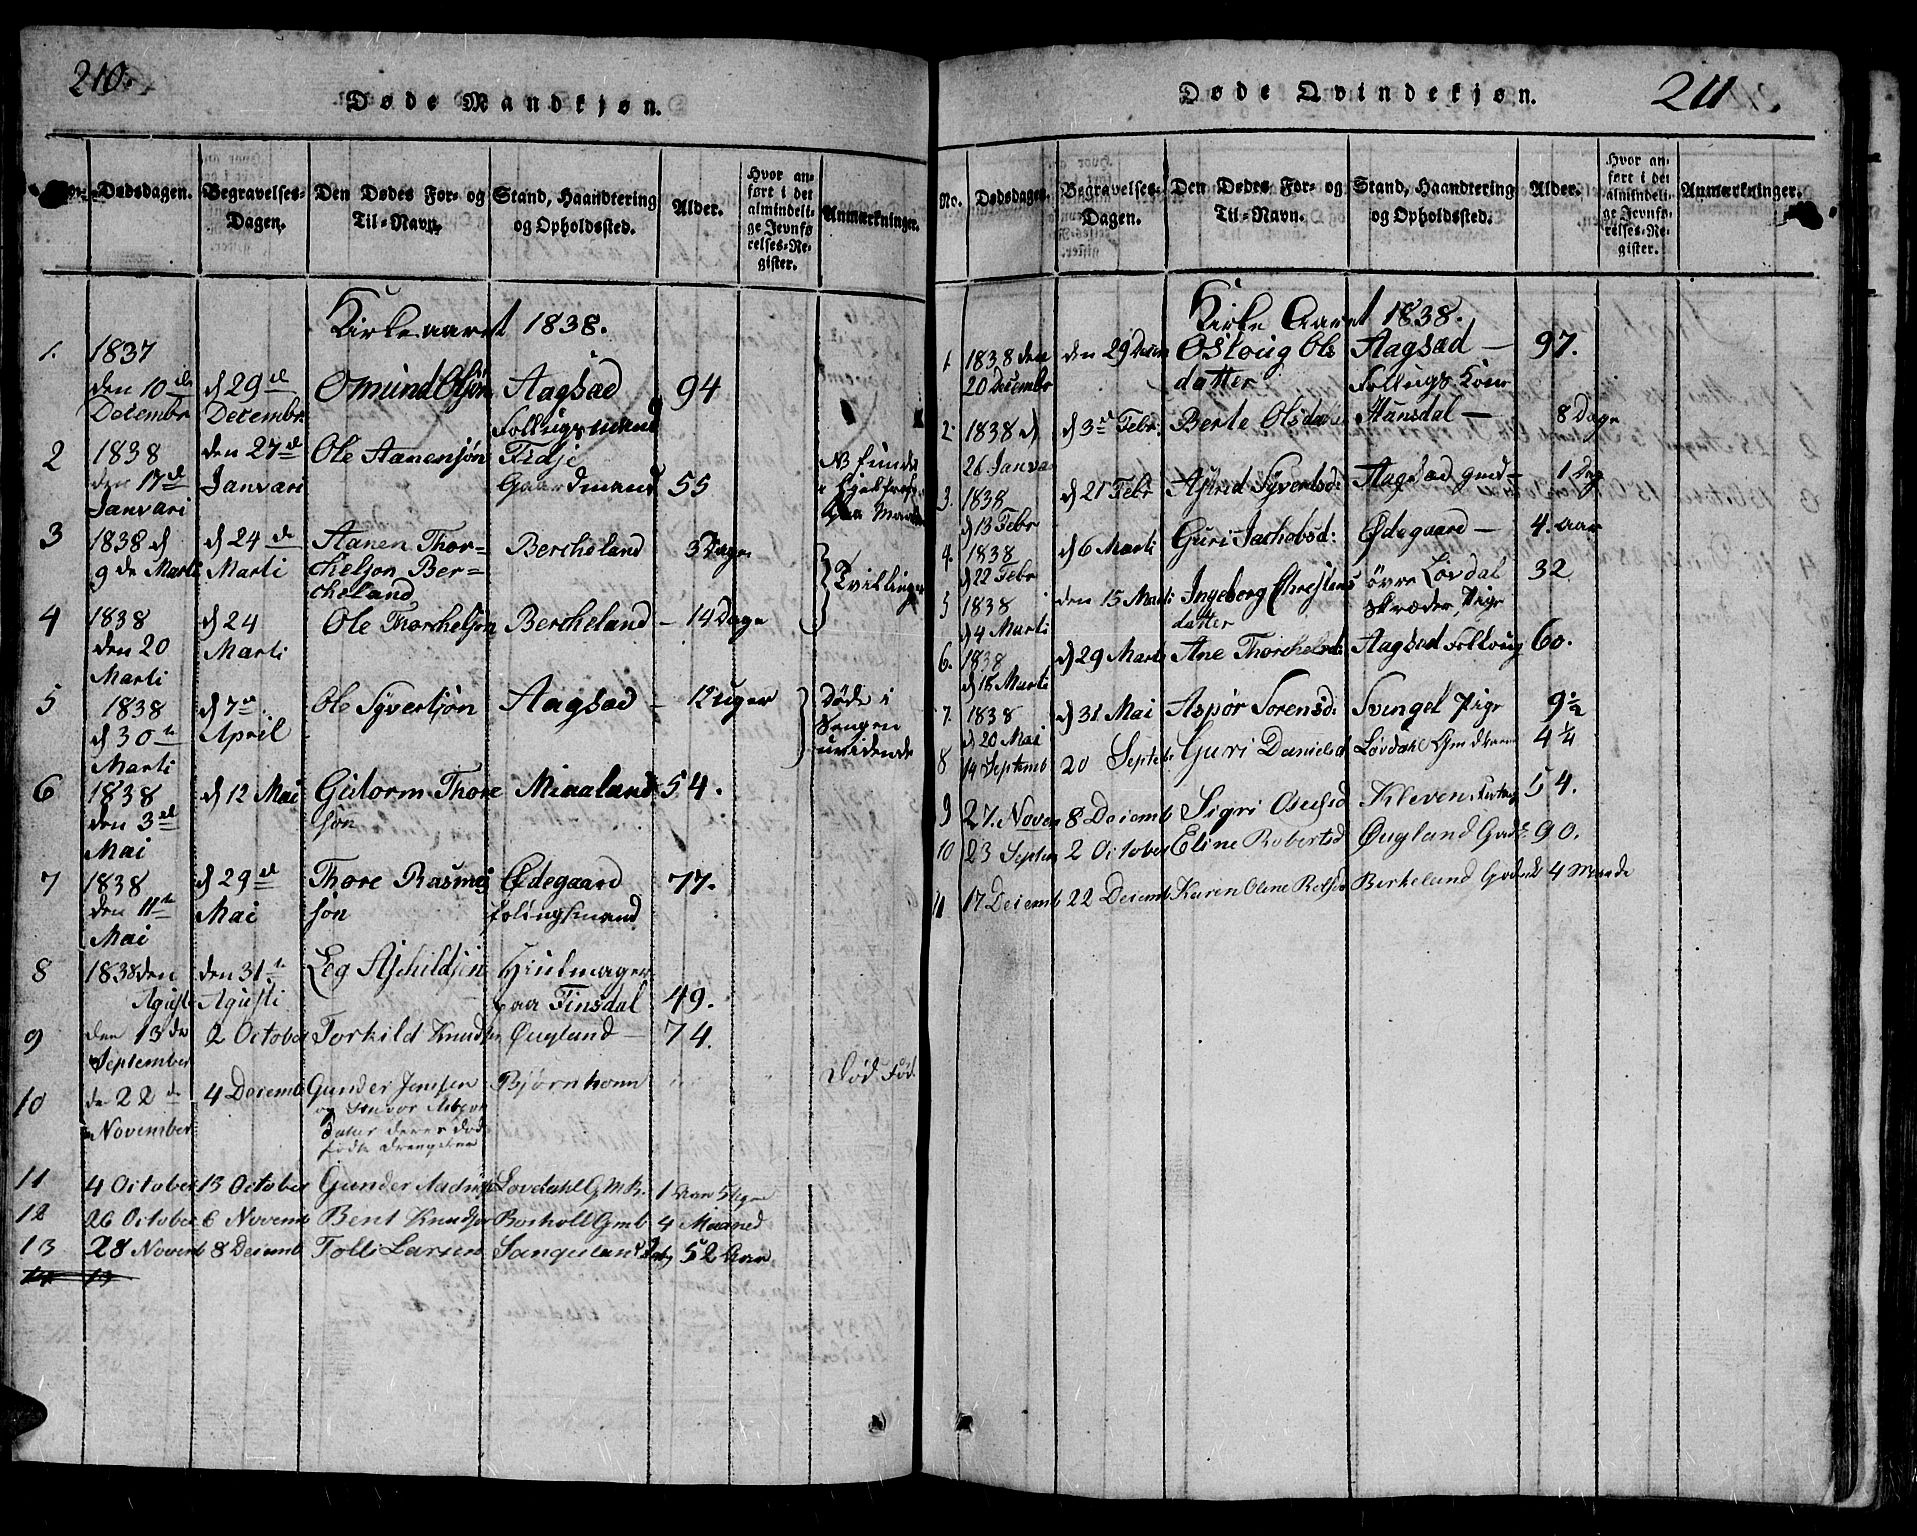 210.
Døde Mandkjøn.
Dødsdagen. Begravelses-Dagen. Den Dødes For- og Til-Navn. Stand, Haandtering og Opholdssted. Alder. Hvor anført i det almindelige Jevnførelses-Register. Anmærkninger.
Kirkeaaret 1838.
1. 1837
den 10de Decembr d 29de Decembr Omund Olsøn Aagsæd Follugsmand 94
2 1838
den 17de Janvari den 27de Janvari Ole Aanensjøn Fidje Gaardmand 55
3 1838 d
9de Marti d 24de Marti Aanen Thor=
chelsøn Ber=
cheland Bercheland 3 Dage Tvillinger
4 1838
den 20 Marti d 24 Marti Ole Thorchelsøn Bercheland - 14 Dage
5 1838
d 30te Marti d 7de April Ole Syvertsøn Aagsæd - 12 uger Døde i
Sengen
uvidende
6 1838
den 3de Mai d 12 Mai Gutorm Thore
søn Miaaland 54.
7 1838
den 11te Mai d 29de Mai Thore Rasmus
søn Ødegaard
folingsmand 77.
8 1838 den
Agusti den 31te Agusti Leg Aschildsen Hiulmager
paa Finsdal 49.
9 den 13de September 2 October Torkild Knudsen Øugland - 74.
10 de 22de November 4 Decemb Gunder Jensen
og
Datter deres død
fødte drengebarn Bjørnhom Død Fød.
11 4 October 13 October Gunder Lovdahl G.M.B. 1 Aar 5 Uger
12 26 October 6 Novemb Bent Knudsen Borholt Gmb 4 Maaned
13 28 Novemb 8 Decemb Tolli Larsen 52 Aar
211.
Døde Qvindekjøn.
No. Dødsdagen. Begravelses-Dagen. Den Dødes For- og Til-Navn. Stand, Haandtering og Opholdssted. Alder. Hvor anført i det almindelige Jevnførelses-Register. Anmærkninger.
Kirke Aaret 1838.
1. 1838 den
20 Decembr den 29 Decem Osloug Ols
datter Aagsæd -
Follugs Kone 97.
2. 1838 d
26 Janva d 3de Febr. Berte Olsdatter Hansdal - 8 Dage
3. 1838
d 13 Febr d 21 Febr Asjerid Syvertsd: Aagsæd gmd - 1 Dag
4. 1838
d 22 Febr d 6 Marti Guri Jachobsd: Ødegaard - 4. aar
5 1838
d 4 Marti den 15 Marti Ingeborg Christens
datter øvre Løvdal
skræder Pige 32
6. 1838
d 18 Marti d 29 Marti Ane Thorchelsd: Aagsæd Follug 60.
7. 1838
d 20 Mai d 31 Mai Aspør Sorensd: Svingel Pige 9½
8 14 Septemb 20 Septeb Guri Danielsd Løvdahl 4¼
9 27. Novem 8 Decemb Sigri Kleven 54.
10 23 Septem 2 October Eline Robertsd Øugland 90.
11 17 Decemb 22 Decemb Karen Oline Rolfsd Birkeland 4 Maade